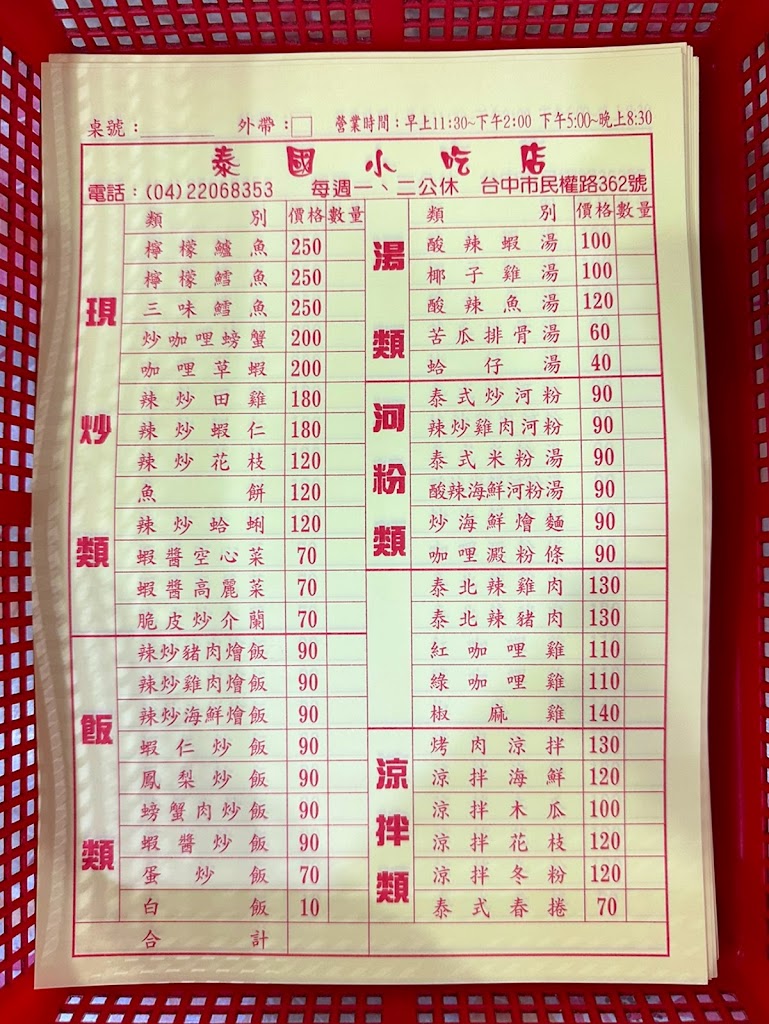 桌號：________ 外帶：□ 營業時間：早上11:30~下午2:00 下午5:00~晚上8:30
泰國小吃店
電話：(04)22068353 每週一、二公休 台中市民權路362號
類別 價格 數量
現炒類
檸檬鱸魚 250
檸檬鱈魚 250
三味鱈魚 250
炒咖哩螃蟹 200
咖哩草蝦 200
辣炒田雞 180
辣炒蝦仁 180
辣炒花枝 120
魚餅 120
辣炒蛤蜊 120
蝦醬空心菜 70
蝦醬高麗菜 70
脆皮炒介蘭 70
飯類
辣炒豬肉燴飯 90
辣炒雞肉燴飯 90
辣炒海鮮燴飯 90
蝦仁炒飯 90
鳳梨炒飯 90
螃蟹肉炒飯 90
蝦醬炒飯 90
蛋炒飯 70
白飯 10
合計
類別 價格 數量
湯類
酸辣蝦湯 100
椰子雞湯 100
酸辣魚湯 120
苦瓜排骨湯 60
蛤仔湯 40
河粉類
泰式炒河粉 90
辣炒雞肉河粉 90
泰式米粉湯 90
酸辣海鮮河粉湯 90
炒海鮮燴麵 90
咖哩澱粉條 90
泰北辣雞肉 130
泰北辣豬肉 130
紅咖哩雞 110
綠咖哩雞 110
椒麻雞 140
涼拌類
烤肉涼拌 130
涼拌海鮮 120
涼拌木瓜 100
涼拌花枝 120
涼拌冬粉 120
泰式春捲 70